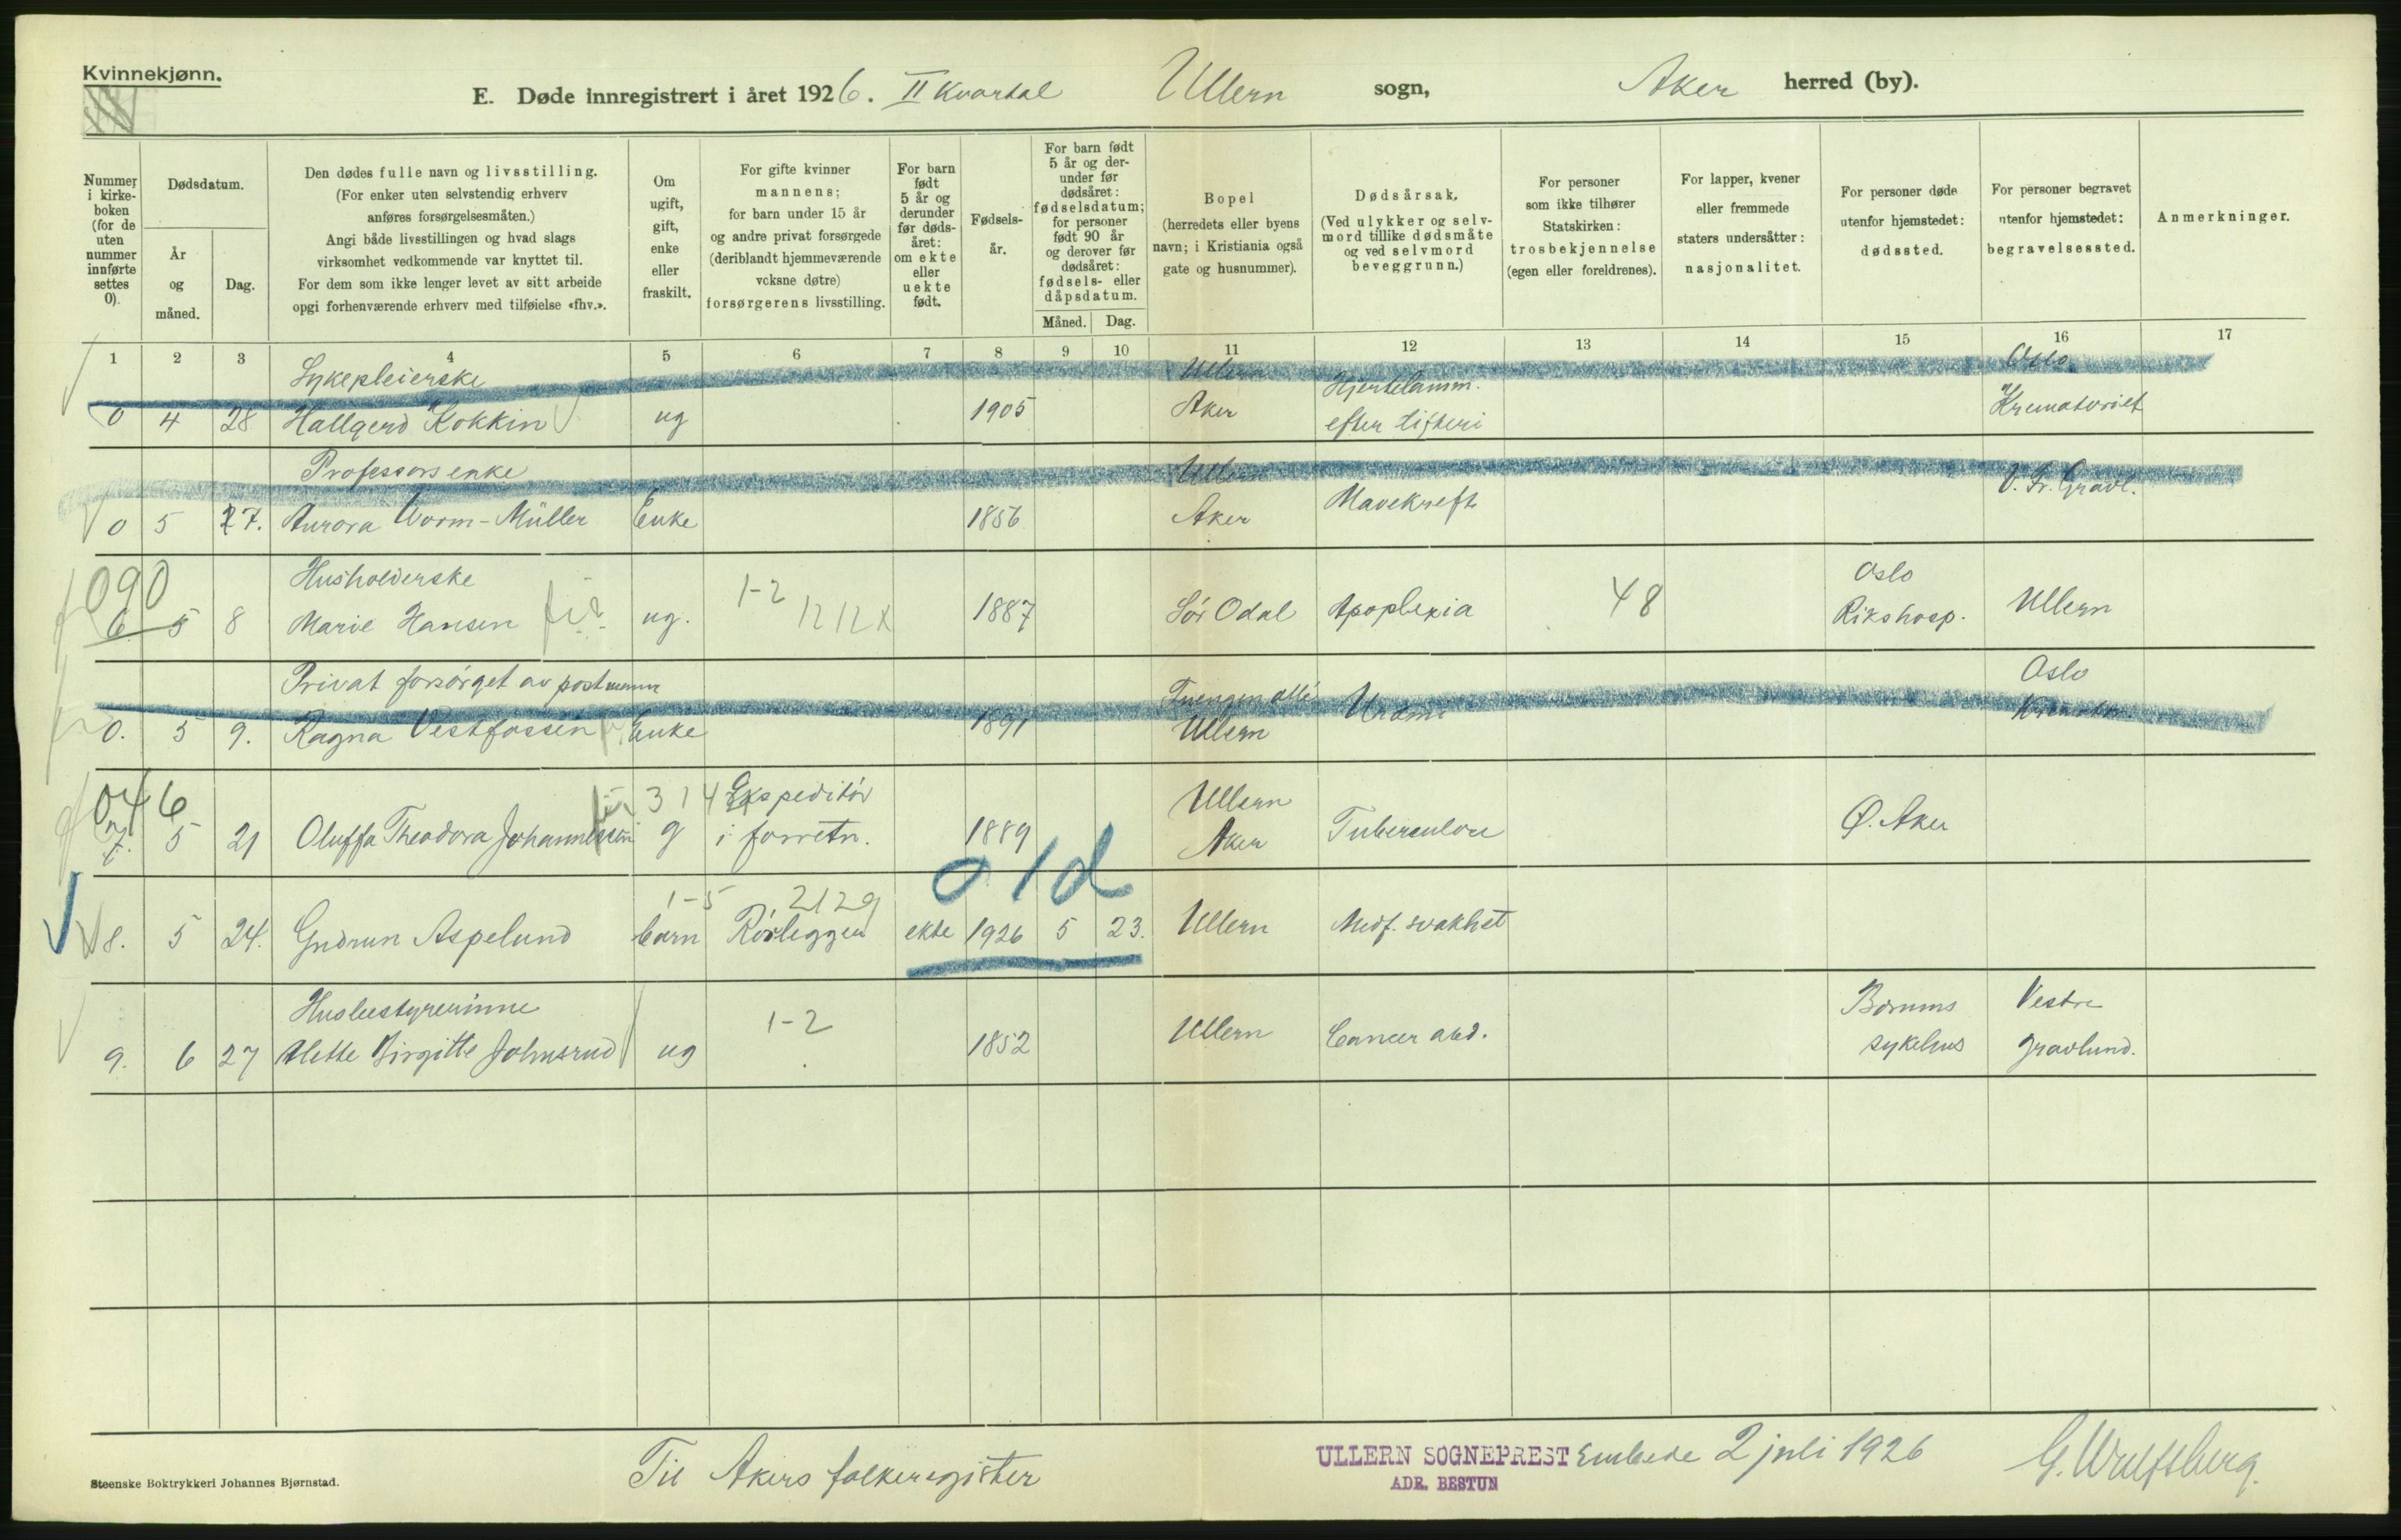 Kvinnekjønn.
E. Døde innregistrert i året 1926. II Kvartal Ullern sogn, Aker herred (by).
Nummer i kirke- boken (for de uten nummer innførte settes 0).
Dødsdatum.
År og måned.
Dag.
Den dødes fulle navn og livsstilling.
(For enker uten selvstendig erhverv
anføres forsørgelsesmåten.)
Angi både livsstillingen og hvad slags
virksomhet vedkommende var knyttet til.
For dem som ikke lenger levet av sitt arbeide
opgi forhenværende erhverv med tilføielse «fhv.».
Om ugift, gift, enke eller fraskilt.
For gifte kvinner
mannens;
for barn under 15 år
og andre privat forsørgede
(deriblandt hjemmeværende
voksne døtre)
forsørgerens livsstilling.
For barn født 5 år og derunder før døds- året: om ekte eller uekte født.
Fødsels- år.
For barn født 5 år og der- under før dødsåret: fødselsdatum; for personer født 90 år og derover før dødsåret: fødsels- eller dåpsdatum.
Måned. Dag.
Bopel
(herredets eller byens
navn; i Kristiania også
gate og husnummer).
Dødsårsak.
(Ved ulykker og selv-
mord tillike dødsmåte
og ved selvmord
beveggrunn.)
For personer
som ikke tilhører
Statskirken:
trosbekjennelse
(egen eller foreldrenes).
For lapper, kvener
eller fremmede
staters undersåtter:
nasjonalitet.
For personer døde
utenfor hjemstedet:
dødssted.
For personer begravet
utenfor hjemstedet:
begravelsessted.
Anmerkninger.
1 2 3 4 5 6 7 8 9 10 11 12 13 14 15 16 17
Sykepleierske Ullern Hjertelamm. Oslo
0 4 28 Hallgerd Kokkin ug 1905 Aker efter difteri Krematoriet
Professorsenke Ullern V. Fr. Gravl.
0 5 27. Aurora Worm-Müller Enke 1856 Aker Mavekreft
090 Husholderske 1-2 48 Oslo
6 5 8 Marie Hansen ug. 1212X 1887 Sør Odal Apoplexia Rikshosp. Ullern
Privat forsørget av postmann Tuengen allé Urämi Oslo
0. 5 9. Ragna Vestfossen Enke 1891 Ullern
046 314 Ekspeditør Ullern
7. 5 21 Oluffa Theodora Johannessen g i forretn. 1889 Aker Tuberculose Ø. Aker
1-5 2129 0 1d
8. 5 24. Gudrun Aspelund barn Rørlegger ekte 1926 5 23. Ullern Medf. svakhet
Husbestyrerinne 1-2 Bærums Vestre
9. 6 27 Mette Birgitte Johnsrud ug 1852 Ullern Cancer abd. sykehus gravlund.
Til Akers folkeregister
ULLERN SOGNEPREST Embede 2 juli 1926 G. Wulfsberg.
ADR. BESTUN
Steenske Boktrykkeri Johannes Bjørnstad.